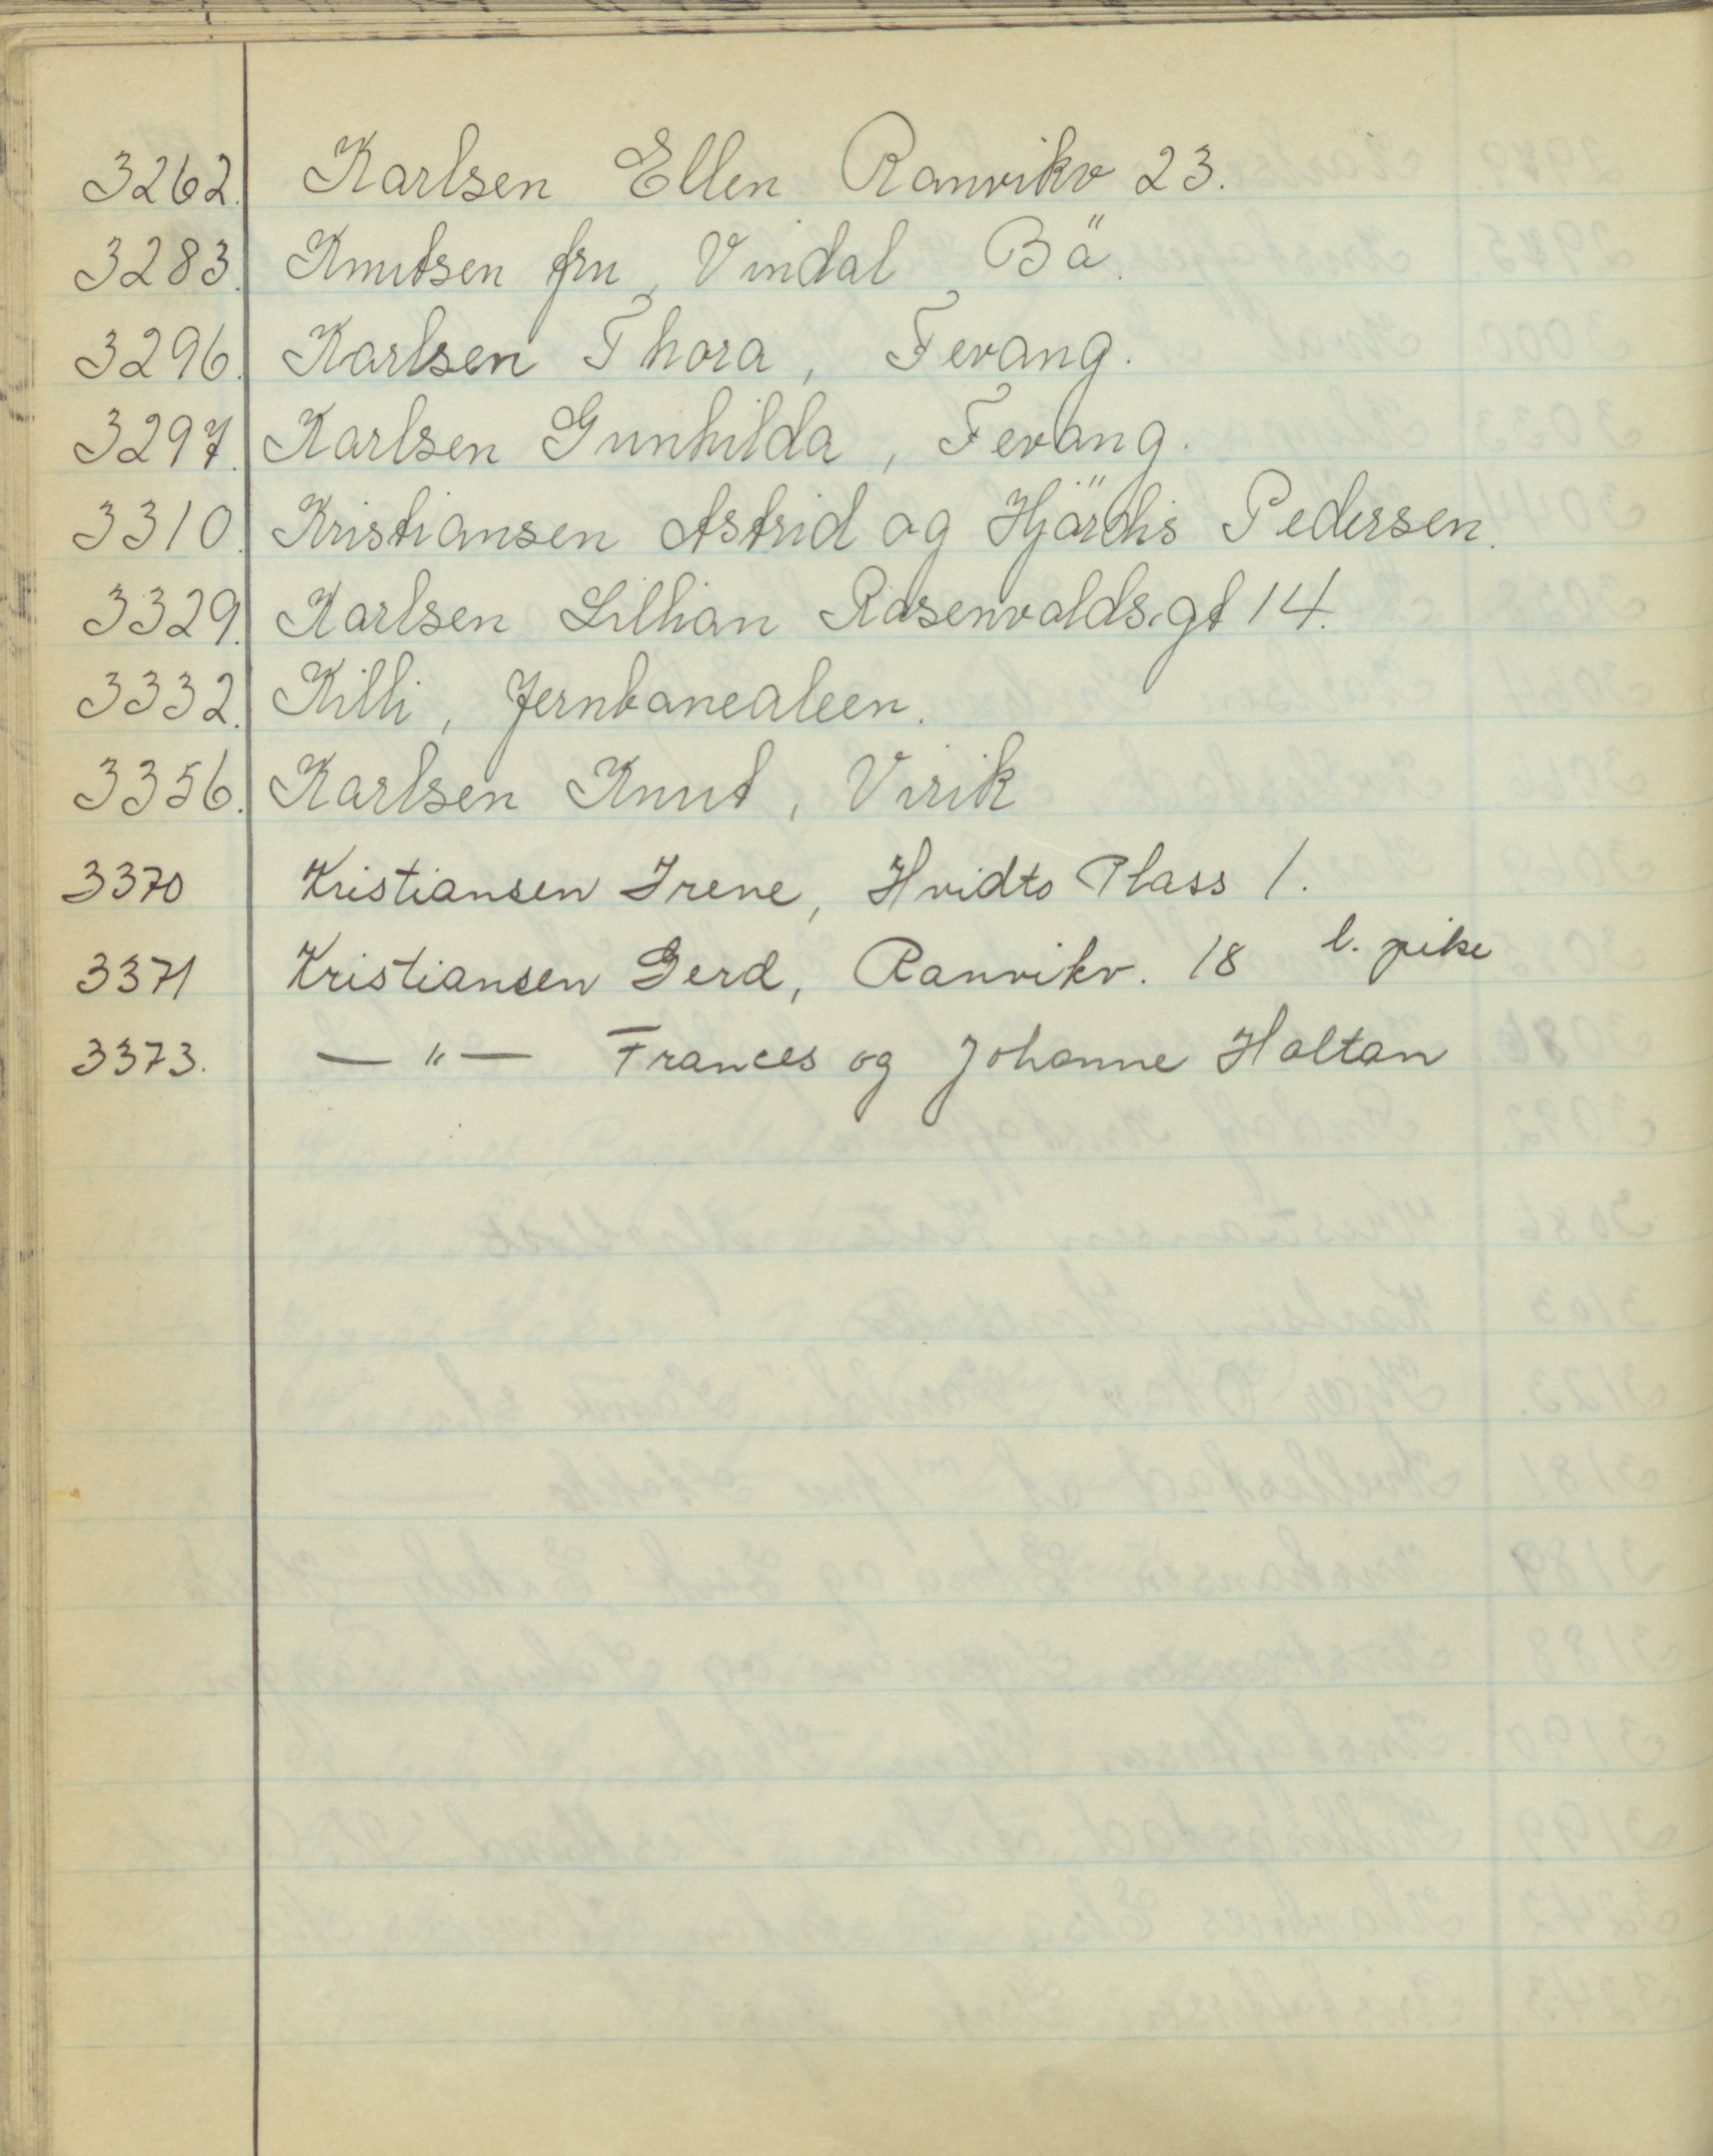 3262. Karlsen Ellen Ranvikv 23.
3283. Knutsen fru, Vindal Bö.
3296. Karlsen Thora, Fevang.
3297. Karlsen Gunhilda, Fevang.
3310. Kristiansen Astrid og Hjördis Pedersen.
3329. Karlsen Lillian Rosenvoldsgt 14.
3332. Killi, Jernbanealeen.
3356. Karlsen Knut, Virik
3370 Kristiansen Irene, Hvidts Plass 1.
3371 Kristiansen Gerd, Ranvikv. 18 l. pike
3373. — " — Frances og Johanne Holtan